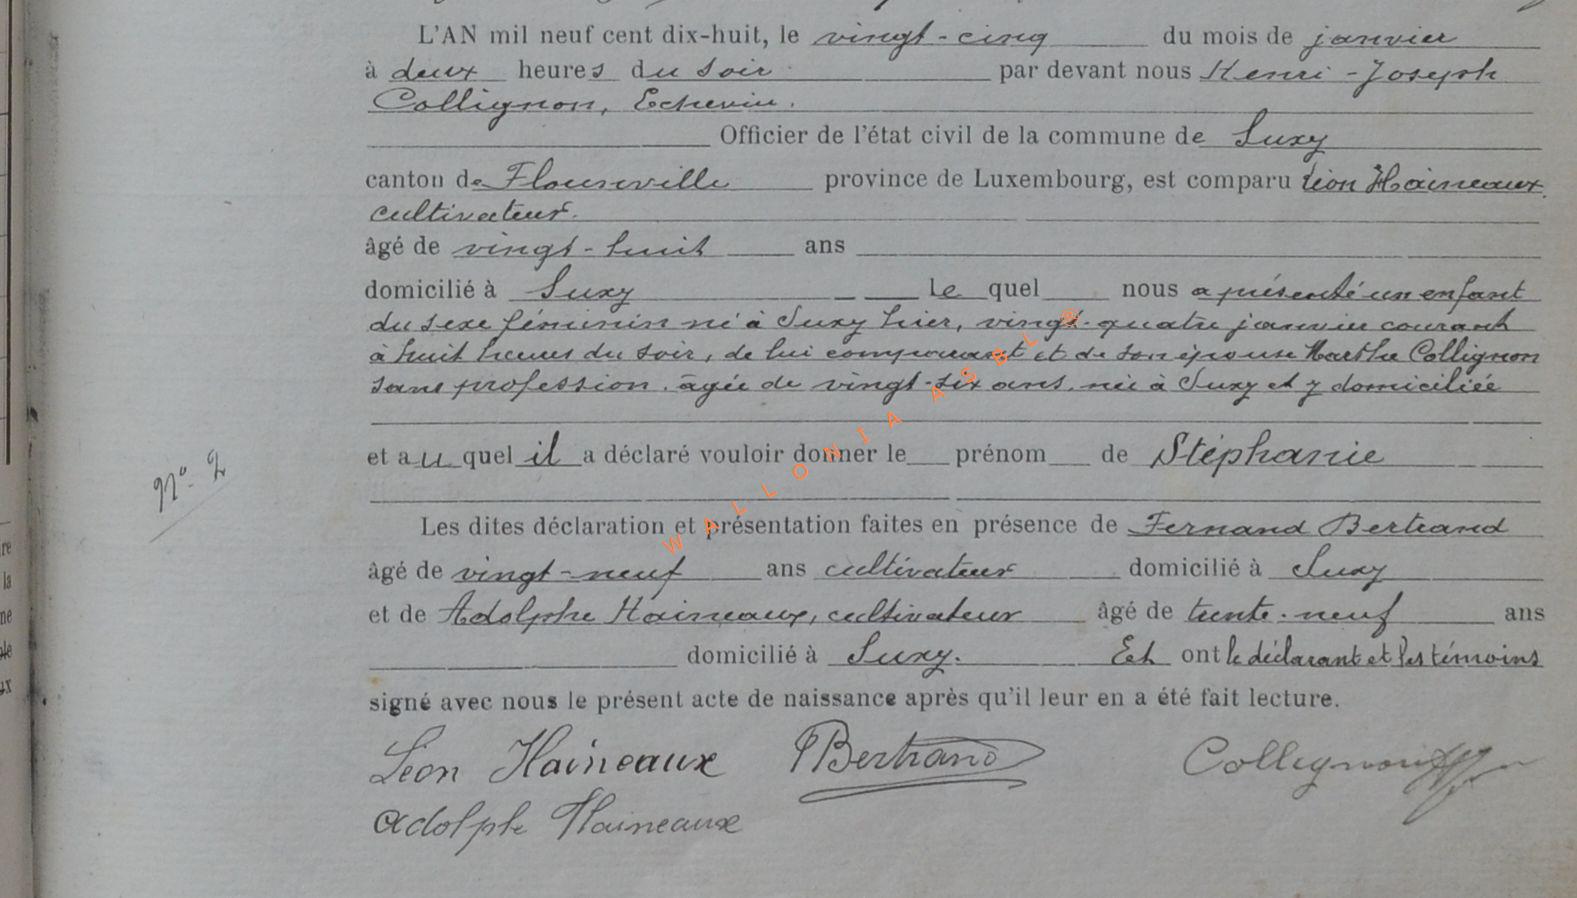 L'AN mil neuf cent dix-huit, le vingt-cinq du mois de janvier
à deux heures du soir par devant nous Henri-Joseph
Collignon, Echevin.
Officier de l'état civil de la commune de Suxy
canton de Florenville province de Luxembourg, est comparu Léon Haineaux
cultivateur.
âgé de vingt-huit ans
domicilié à Suxy Le quel nous a présenté un enfant
du sexe féminin né à Suxy hier, vingt-quatre janvier courant
à huit heures du soir, de lui comparant et de son épouse Marthe Collignon
sans profession, âgée de vingt-six ans, née à Suxy et y domiciliée
N° 2
et au quel il a déclaré vouloir donner le prénom de Stéphanie
Les dites déclaration et présentation faites en présence de Fernand Bertrand
âgé de vingt-neuf ans cultivateur domicilié à Suxy
et de Adolphe Haineaux, cultivateur âgé de trente-neuf ans
domicilié à Suxy. Et ont le déclarant et les témoins
signé avec nous le présent acte de naissance après qu'il leur en a été fait lecture.
Léon Haineaux FBertrand Collignon
Adolphe Haineaux
WALLONIA ASBL ®
re
la
ne
ple
ux